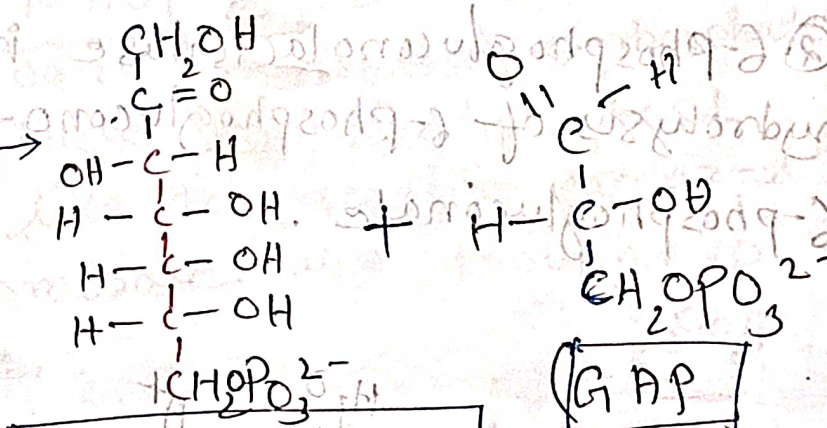 CH₂OH
C=O
→ OH-C-H
H-C-OH
H-C-OH
H-C-OH
CH₂OPO₃²⁻
+
O H
C
H-C-OH
CH₂OPO₃²⁻
(GAP